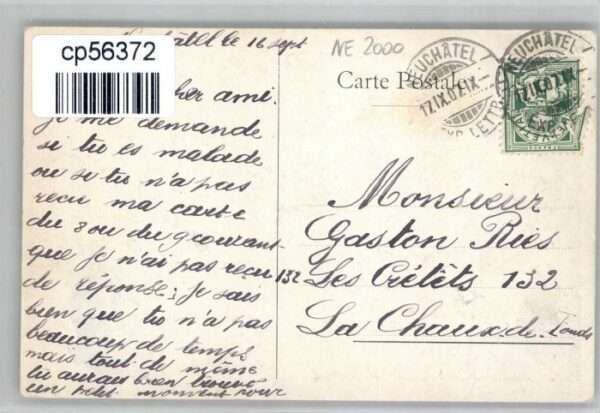 cp56372
le 16 sept
NE 2000
Carte Postale
NEUCHÂTEL
17.IX.07.IX
EXP. LETTR.
NEUCHÂTEL
17.IX.07.IX
cher ami.
Je me demande
si tu es malade
ou si tu n'a pas
reçu ma carte
du 8 ou du 9 courant
que je n'ai pas reçu
de réponse; je sais
bien que tu n'a pas
beaucoup de temps
mais tout de même
tu aurais bien trouvé
un petit moment pour
Monsieur
Gaston Ries
132 Les Crétêts 132
La Chaux-de-Fonds